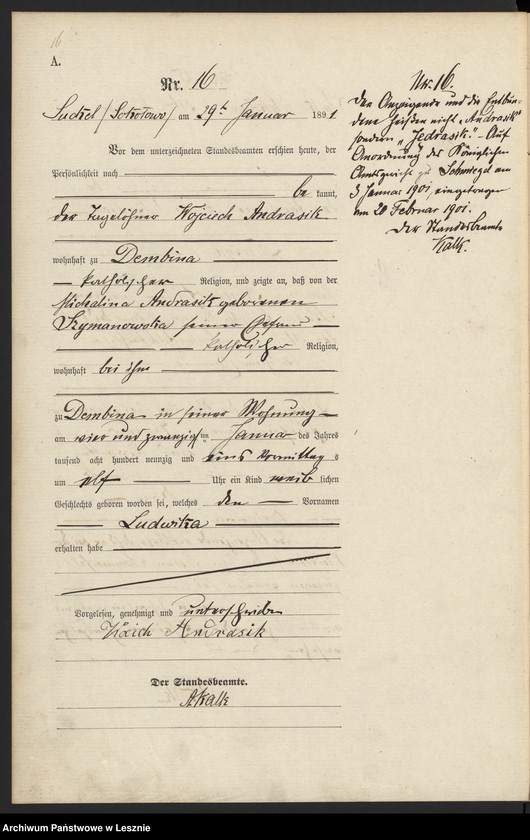 16
A.
Nr. 16
am 29ten Januar 1891.
Vor dem unterzeichneten Standesbeamten erschien heute, der
Persönlichkeit nach
be kannt,
der Tagelöhner Wojciech Andrasik
wohnhaft zu Dembina
katholischer Religion, und zeigte an, daß von der
Michalina Andrasik geborenen
Szymanowska seiner Ehefrau
katholischer Religion,
wohnhaft bei ihm
zu Dembina in seiner Wohnung
am vier und zwanzigsten Januar des Jahres
tausend acht hundert neunzig und eins Vormittag s
um elf Uhr ein Kind weib lichen
Geschlechts geboren worden sei, welches den Vornamen
Ludwika
erhalten habe
Vorgelesen, genehmigt und unterschrieben
Andrasik
Der Standesbeamte.
AKalk
Nr. 16.
Der Anzeigende und die Entbun-
dene heißen nicht „Andrasik"
sondern „Jedrasik." – Auf
Anordnung des Königlichen
Amtsgerichts zu Schmiegel am
3 Januar 1901, eingetragen
am 20 Februar 1901.
Der Standesbeamte
Kalk.
Archiwum Państwowe w Lesznie